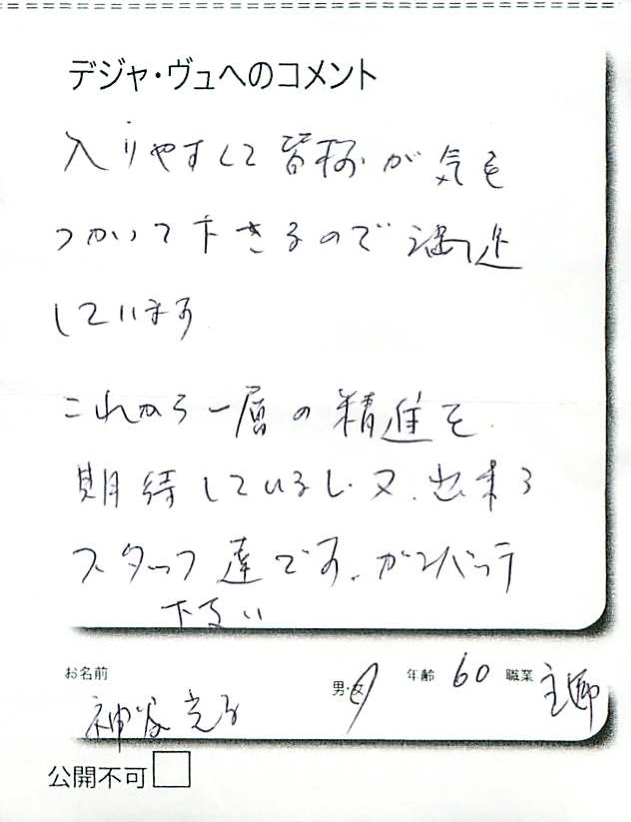 デジャ・ヴュへのコメント
入りやすくて皆様が気を
つかって下さるので満足
しています
これから一層の精進を
期待しているし.又.出来る
スタッフ達です.ガンバッテ
下さい
お名前 神谷光子 男・女 年齢 60 職業 主婦
公開不可